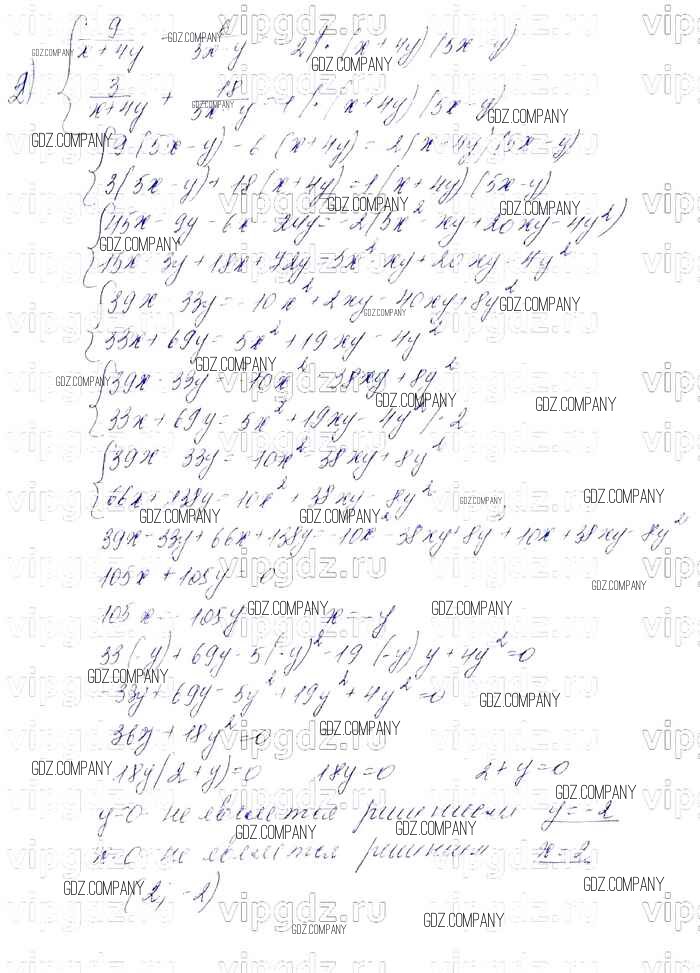 2) { 9/(x+4y) - 6/(5x-y) = -2 | · (x+4y)(5x-y)
3/(x+4y) + 18/(5x-y) = 1 | · (x+4y)(5x-y)
{ 9(5x-y) - 6(x+4y) = -2(x+4y)(5x-y)
3(5x-y) + 18(x+4y) = 1(x+4y)(5x-y)
{ 45x - 9y - 6x - 24y = -2(5x² - xy + 20xy - 4y²)
15x - 3y + 18x + 72y = 5x² - xy + 20xy - 4y²
{ 39x - 33y = -10x² + 2xy - 40xy + 8y²
33x + 69y = 5x² + 19xy - 4y²
{ 39x - 33y = -10x² - 38xy + 8y²
33x + 69y = 5x² + 19xy - 4y² | · 2
{ 39x - 33y = -10x² - 38xy + 8y²
66x + 138y = 10x² + 38xy - 8y²
39x - 33y + 66x + 138y = -10x² - 38xy + 8y² + 10x² + 38xy - 8y²
105x + 105y = 0
105x = -105y x = -y
33(-y) + 69y - 5(-y)² - 19(-y)y + 4y² = 0
-33y + 69y - 5y² + 19y² + 4y² = 0
36y + 18y² = 0
18y(2+y) = 0 18y = 0 2+y = 0
y=0 не является решением y = -2
x=0 не является решением x = 2
(2; -2)
GDZ.COMPANY
vipgdz.ru